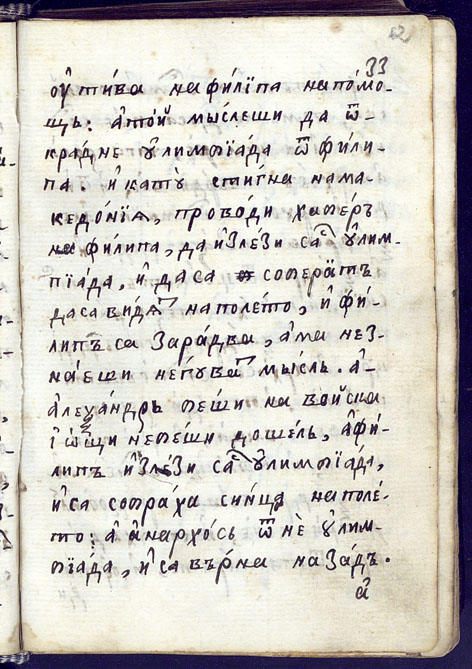 33
ᲂу҆ти́ва нафилі́па напо́мо-
щь: а҆то́й мы́слеши да ѿ-
кра́дне ᲂу҆лимпїа́да ѿ фи́ли-
па. и҆като̀ стигна нама-
кедо́нїѧ, прово́ди хапе́рь
нафи́липа, да и҆зле́зи са ᲂу҆лим-
пїа́да, и҆ даса соперѧтъ
дасавидѧт наполе́то, и҆ фи́-
липъ са зара́два, а҆ма нез-
на́еши него́ва мы́сль. а҆-
а҆леѯа́ндрь пеши на во́йска
і҆ѡ́щи непе́ши доше́ль, а҆фи́-
липъ и҆зле́зи са ᲂу҆лимпїа́да,
и҆са сопра́ха си́нца наполе́-
то: а҆ а҆нархо́сь ѿнѐ ᲂу҆лим-
пїа́да, и҆ са вър́на наза́дъ.
а҆